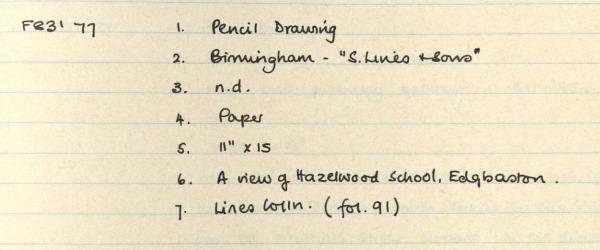 F831' 77 1. Pencil Drawing
2. Birmingham - "S. Lines & Sons"
3. n.d.
4. Paper
5. 11" x 15
6. A view of Hazelwood School, Edgbaston.
7. Lines Colln. (fol. 91)